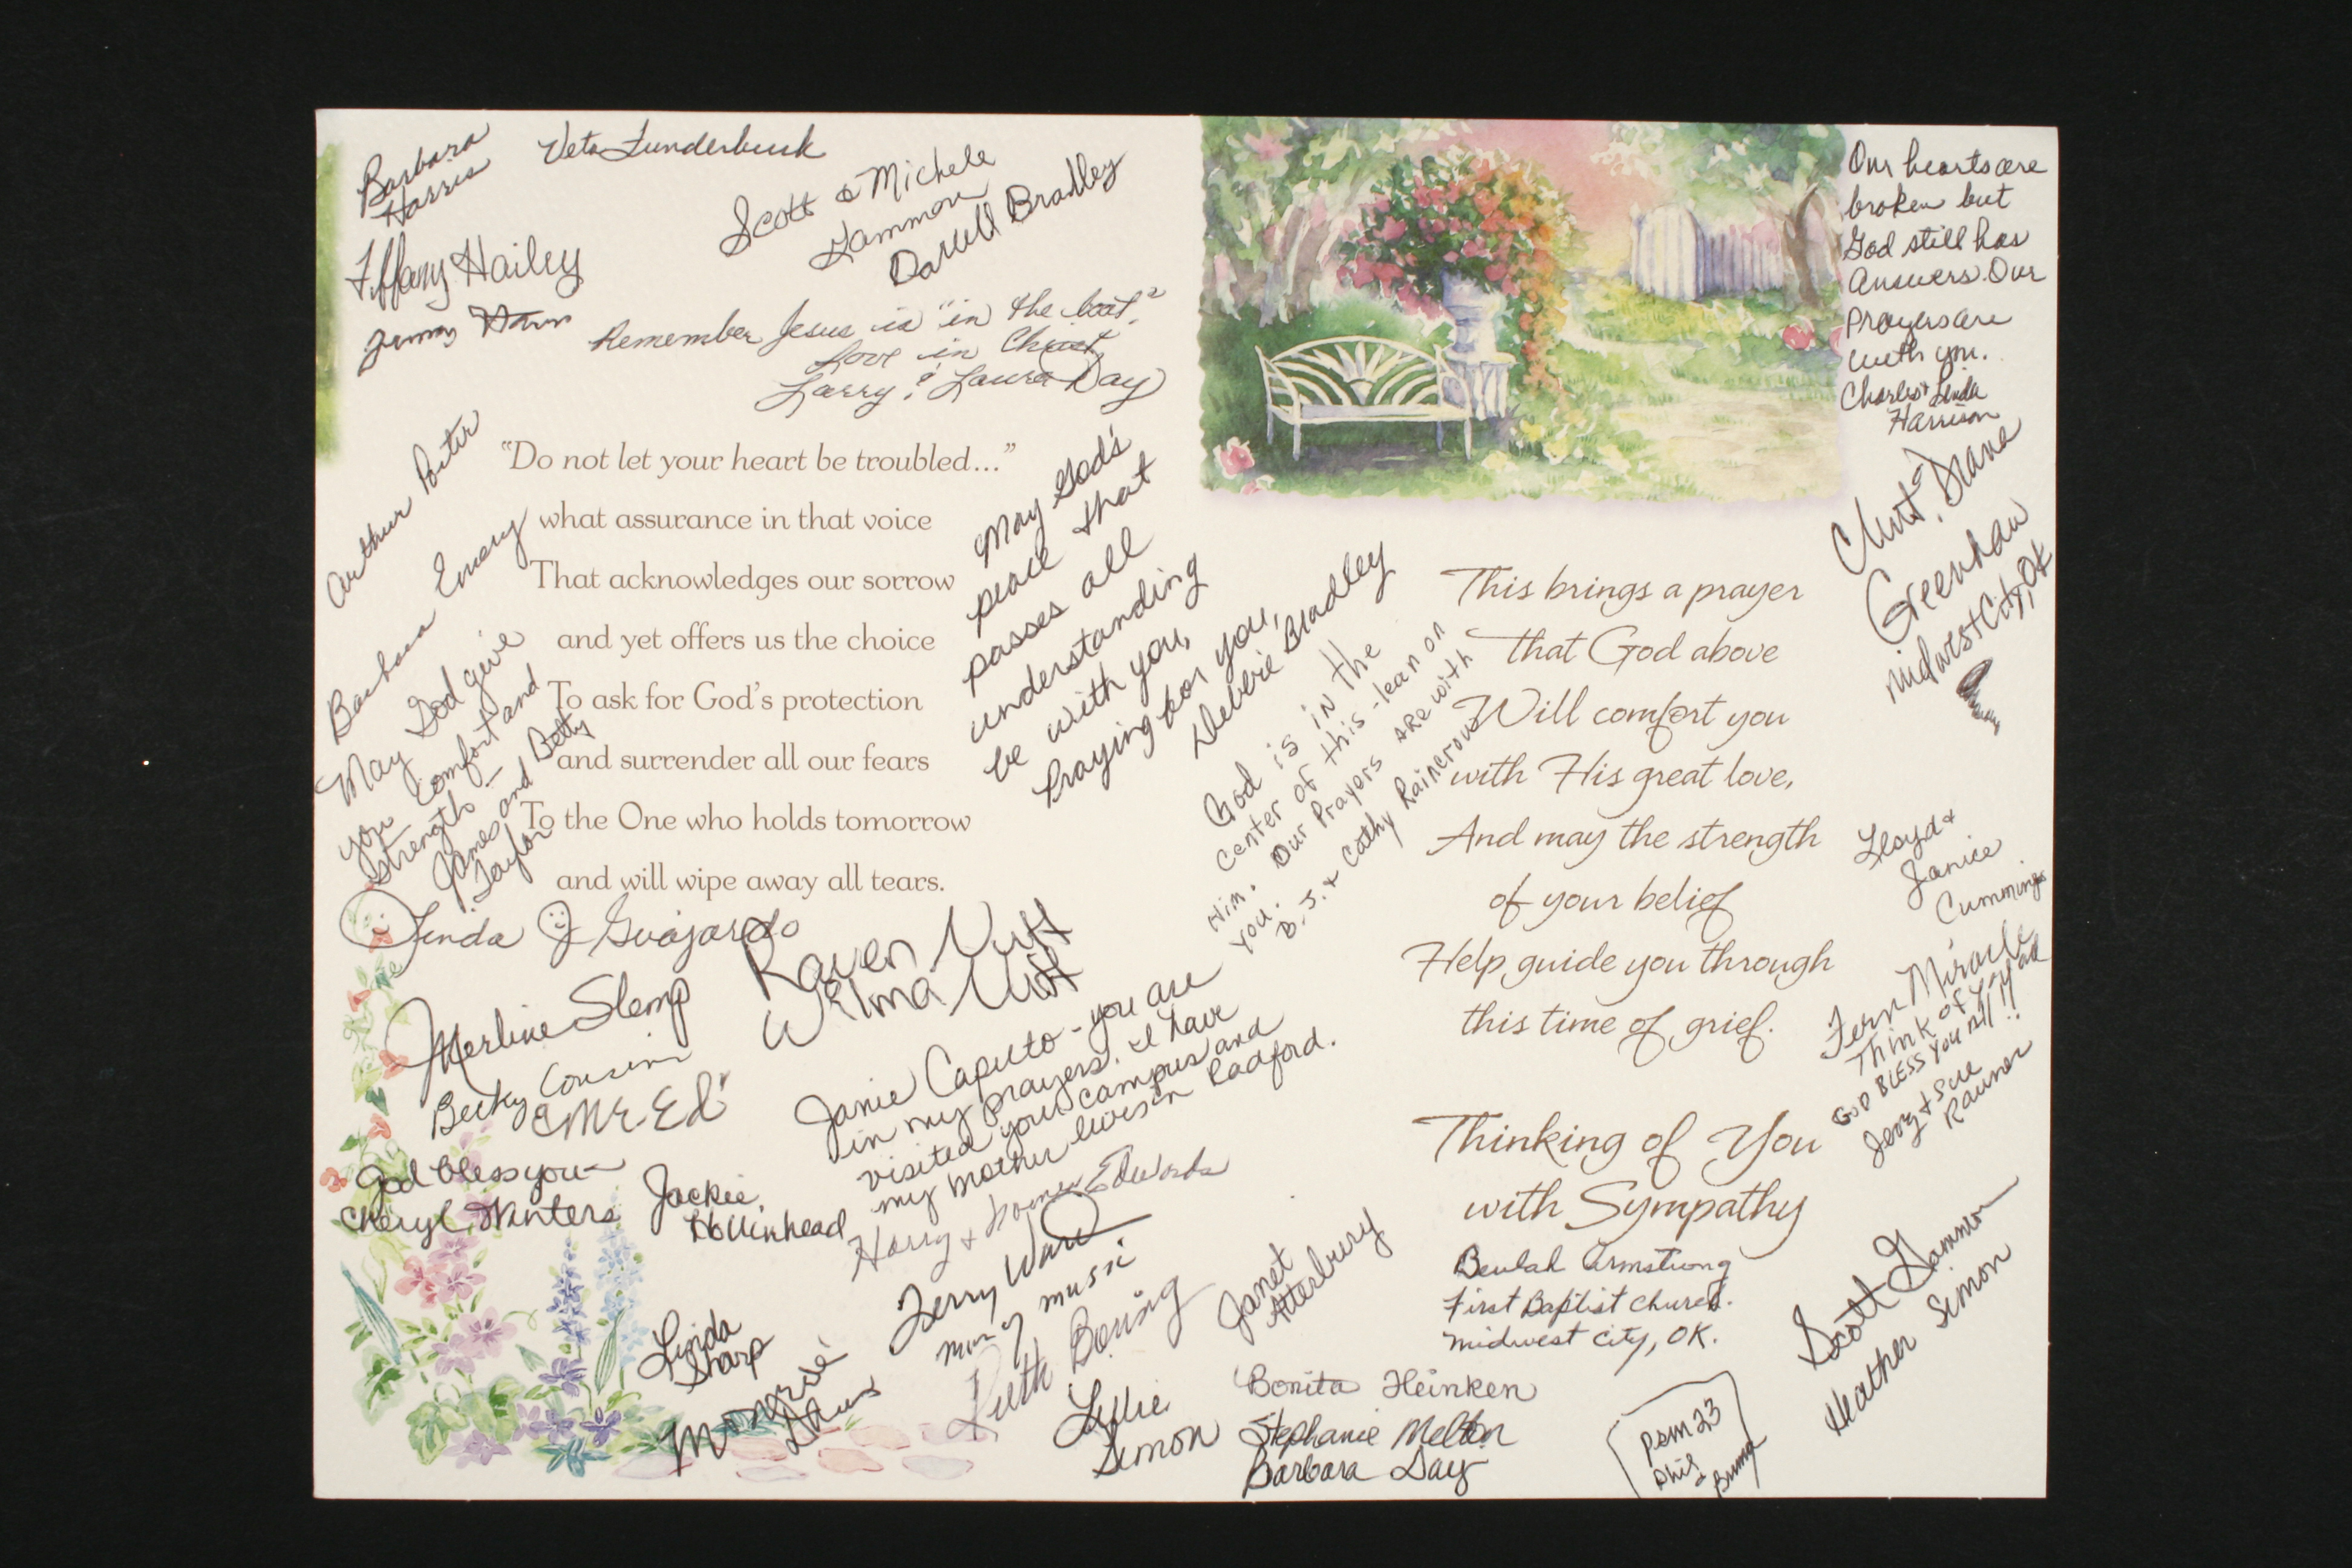 Barbara
Harris
Veta Funderburk
Scott & Michele
Gammon
Darrell Bradley
Tiffany Hailey
Remember Jesus is "in the boat."
Love in Christ,
Larry & Laura Day
"Do not let your heart be troubled..."
what assurance in that voice
That acknowledges our sorrow
and yet offers us the choice
To ask for God's protection
and surrender all our fears
To the One who holds tomorrow
and will wipe away all tears.
Arthur Porter
Barbara Emery
May God give
you comfort and
strength –
James and Betty
Taylor
May God's
peace that
passes all
understanding
be with you,
Praying for you,
Debbie Bradley
Linda J Guajardo
Raven Nutt
Wilma Nutt
Merline Slemp
Becky Cousin
God bless you –
Cheryl Winters
Jackie
Hollinhead
Janie Caputo - you are
in my prayers. I have
visited your campus and
my mother lives in Radford.
Harry & Edwards
Terry Ware
Min of music
Linda
Sharp
Ruth
Lillie
Simon
Janet
Atterbury
Bonita Heinken
Stephanie Melton
Barbara Day
God is in the
center of this - lean on
Him. Our Prayers are with
you.
B.J. & Cathy
Our hearts are
broken but
God still has
Answers. Our
Prayers are
with you.
Charles & Linda
Harrison
Clint & Diana
Greenhaw
Midwest City, OK
This brings a prayer
that God above
Will comfort you
with His great love,
And may the strength
of your belief
Help guide you through
this time of grief.
Thinking of You
with Sympathy
Lloyd &
Janice
Cummings
Fern Miracle
Think of you all
God BLESS You All!!
Jerry & Sue
Rauner
Beulah Armstrong
First Baptist Church.
Midwest City, OK.
Scott Gammon
Heather Simon
Psm 23
Phil
&